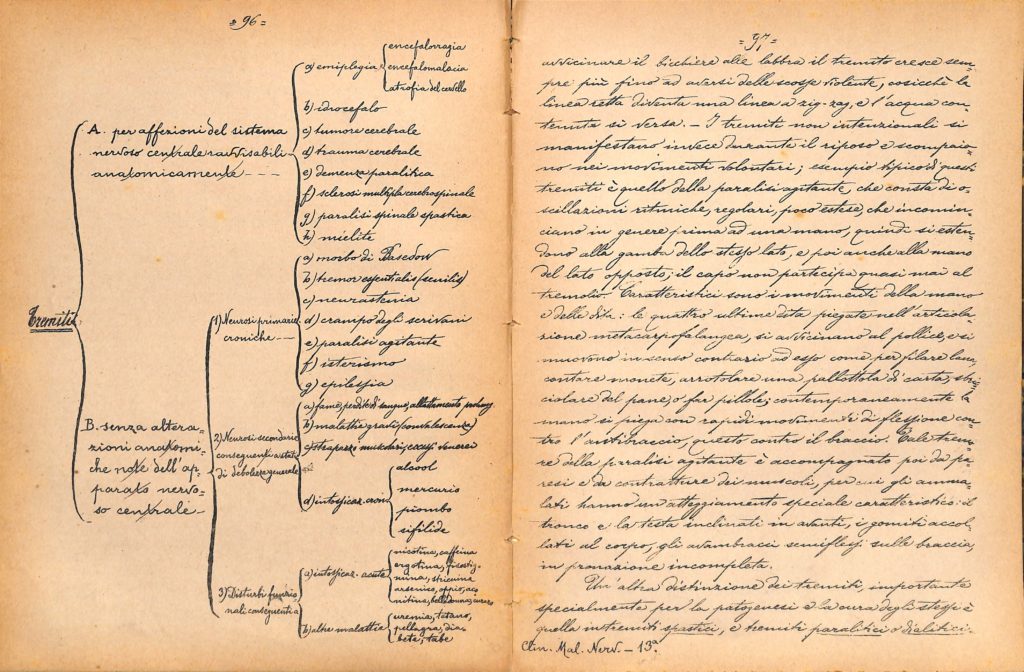 = 96 =
Tremiti
A. per affezioni del sistema
nervoso centrale ravvisabili
anatomicamente - - -
a) emiplegia
encefalorragia
encefalomalacia
atrofia del cervello
b) idrocefalo
c) tumore cerebrale
d) trauma cerebrale
e) demenza paralitica
f) sclerosi multipla cerebrospinale
g) paralisi spinale spastica
h) mielite
B. senza altera-
zioni anatomi-
che note dell'ap-
parato nervo-
so centrale -
1) Neurosi primarie
croniche - -
a) morbo di Basedow
b) tremor essentialis (senilis)
c) neurastenia
d) crampo degli scrivani
e) paralisi agitante
f) isterismo
g) epilessia
2) Neurosi secondarie
conseguenti a stati
di debolezza generale
a) fame, perdite di sangue, allattamento prolung.
b) malattie gravi (convalescenza)
c) strapazzi muscolari, eccessi venerei
d) intossicaz. cron.
alcool
mercurio
piombo
sifilide
3) Disturbi funzio-
nali conseguenti a
a) intossicaz. acute
nicotina, caffeina
ergotina, fisostig-
mina, stricnina
arsenico, oppio, aco-
nitina, belladonna, curaro
b) altre malattie
uremia, tetano,
pellagra, dia-
bete, tabe
= 97 =
avvicinare il bicchiere alle labbra il tremito cresce sem-
pre più fino ad aversi delle scosse violente, cosicchè la
linea retta diventa una linea a zig-zag, e l'acqua con-
tenuta si versa. - I tremiti non intenzionali si
manifestano invece durante il riposo e scompaio-
no nei movimenti volontari; esempio tipico di questi
tremiti è quello della paralisi agitante, che consta di o-
scillazioni ritmiche, regolari, poco estese, che incomin-
ciano in genere prima ad una mano, quindi si esten-
dono alla gamba dello stesso lato, e poi anche alla mano
del lato opposto; il capo non participa quasi mai al
tremolio. Caratteristici sono i movimenti della mano
e delle dita: le quattro ultime dita piegate nell'articola-
zione metacarpofalangea, si avvicinano al pollice, e si
muovono in senso contrario ad esso come per filare lana,
contare monete, arrotolare una pallottola di carta, sbri-
ciolare del pane, o far pillole; contemporaneamente la
mano si piega con rapidi movimenti di flessione con-
tro l'antibraccio, questo contro il braccio. Tale tremo-
re della paralisi agitante è accompagnato poi da pa-
resi e da contratture dei muscoli, per cui gli amma-
lati hanno un atteggiamento speciale caratteristico: il
tronco e la testa inclinati in avanti, i gomiti accol-
lati al corpo, gli avambracci semiflessi sulle braccia,
in pronazione incompleta.
Un'altra distinzione dei tremiti, importante
specialmente per la patogenesi e la cura degli stessi è
quella in tremiti spastici, e tremiti paralitici o dialitici.
Clin. Mal. Nerv. - 13ª